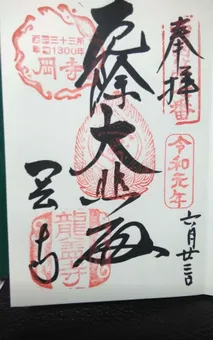 奉拝
令和元年
六月廿三日
厄除大悲殿
西国三十三所
草創1300年
岡寺
岡寺
龍蓋寺